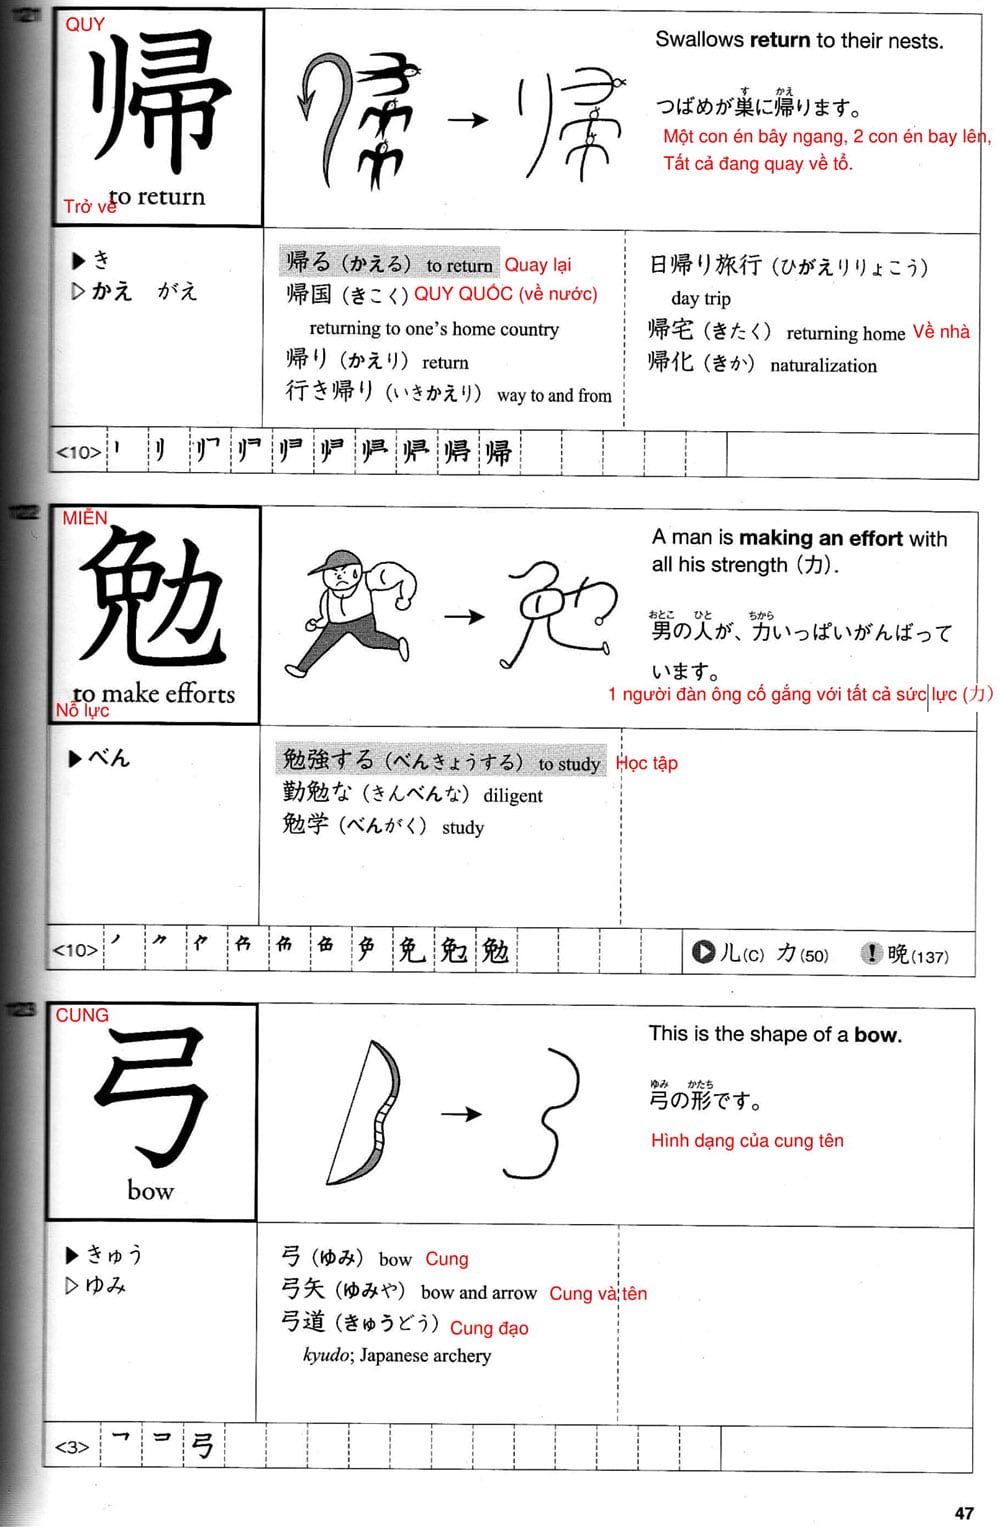 121
QUY
帰
to return
Trở về
Swallows return to their nests.
つばめが巣に帰ります。
す かえ
Một con én bây ngang, 2 con én bay lên,
Tất cả đang quay về tổ.
▶ き
▷ かえ がえ
帰る（かえる） to return Quay lại
帰国（きこく） QUY QUỐC (về nước)
returning to one's home country
帰り（かえり） return
行き帰り（いきかえり） way to and from
日帰り旅行（ひがえりりょこう）
day trip
帰宅（きたく） returning home Về nhà
帰化（きか） naturalization
<10> 帰
122
MIỄN
勉
to make efforts
Nỗ lực
A man is making an effort with
all his strength（力）.
おとこ ひと ちから
男の人が、力いっぱいがんばって
います。
1 người đàn ông cố gắng với tất cả sức lực (力)
▶ べん
勉強する（べんきょうする） to study Học tập
勤勉な（きんべんな） diligent
勉学（べんがく） study
<10> 勉
▶ 儿(C) 力(50) ! 晩(137)
123
CUNG
弓
bow
This is the shape of a bow.
ゆみ かたち
弓の形です。
Hình dạng của cung tên
▶ きゅう
▷ ゆみ
弓（ゆみ） bow Cung
弓矢（ゆみや） bow and arrow Cung và tên
弓道（きゅうどう） Cung đạo
kyudo; Japanese archery
<3> 弓
47